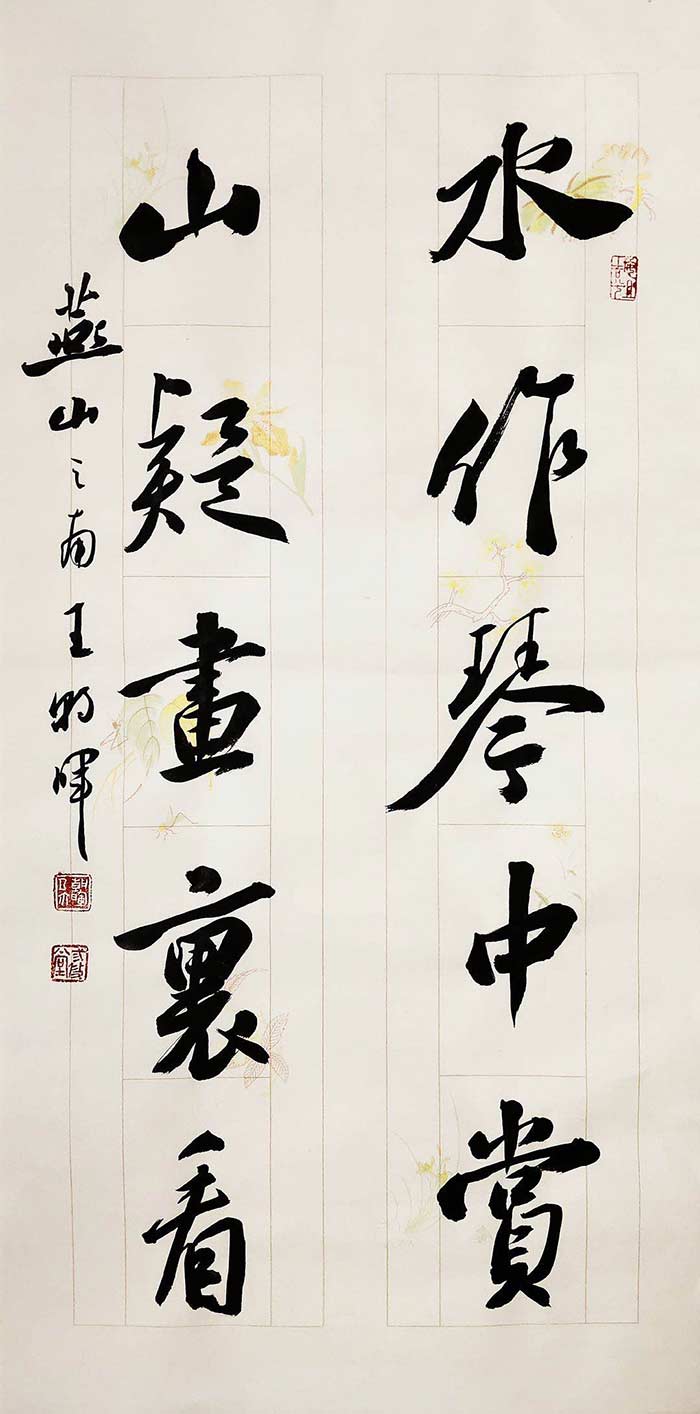 水作琴中賞
山疑畫裏看
燕山之南王朝暉